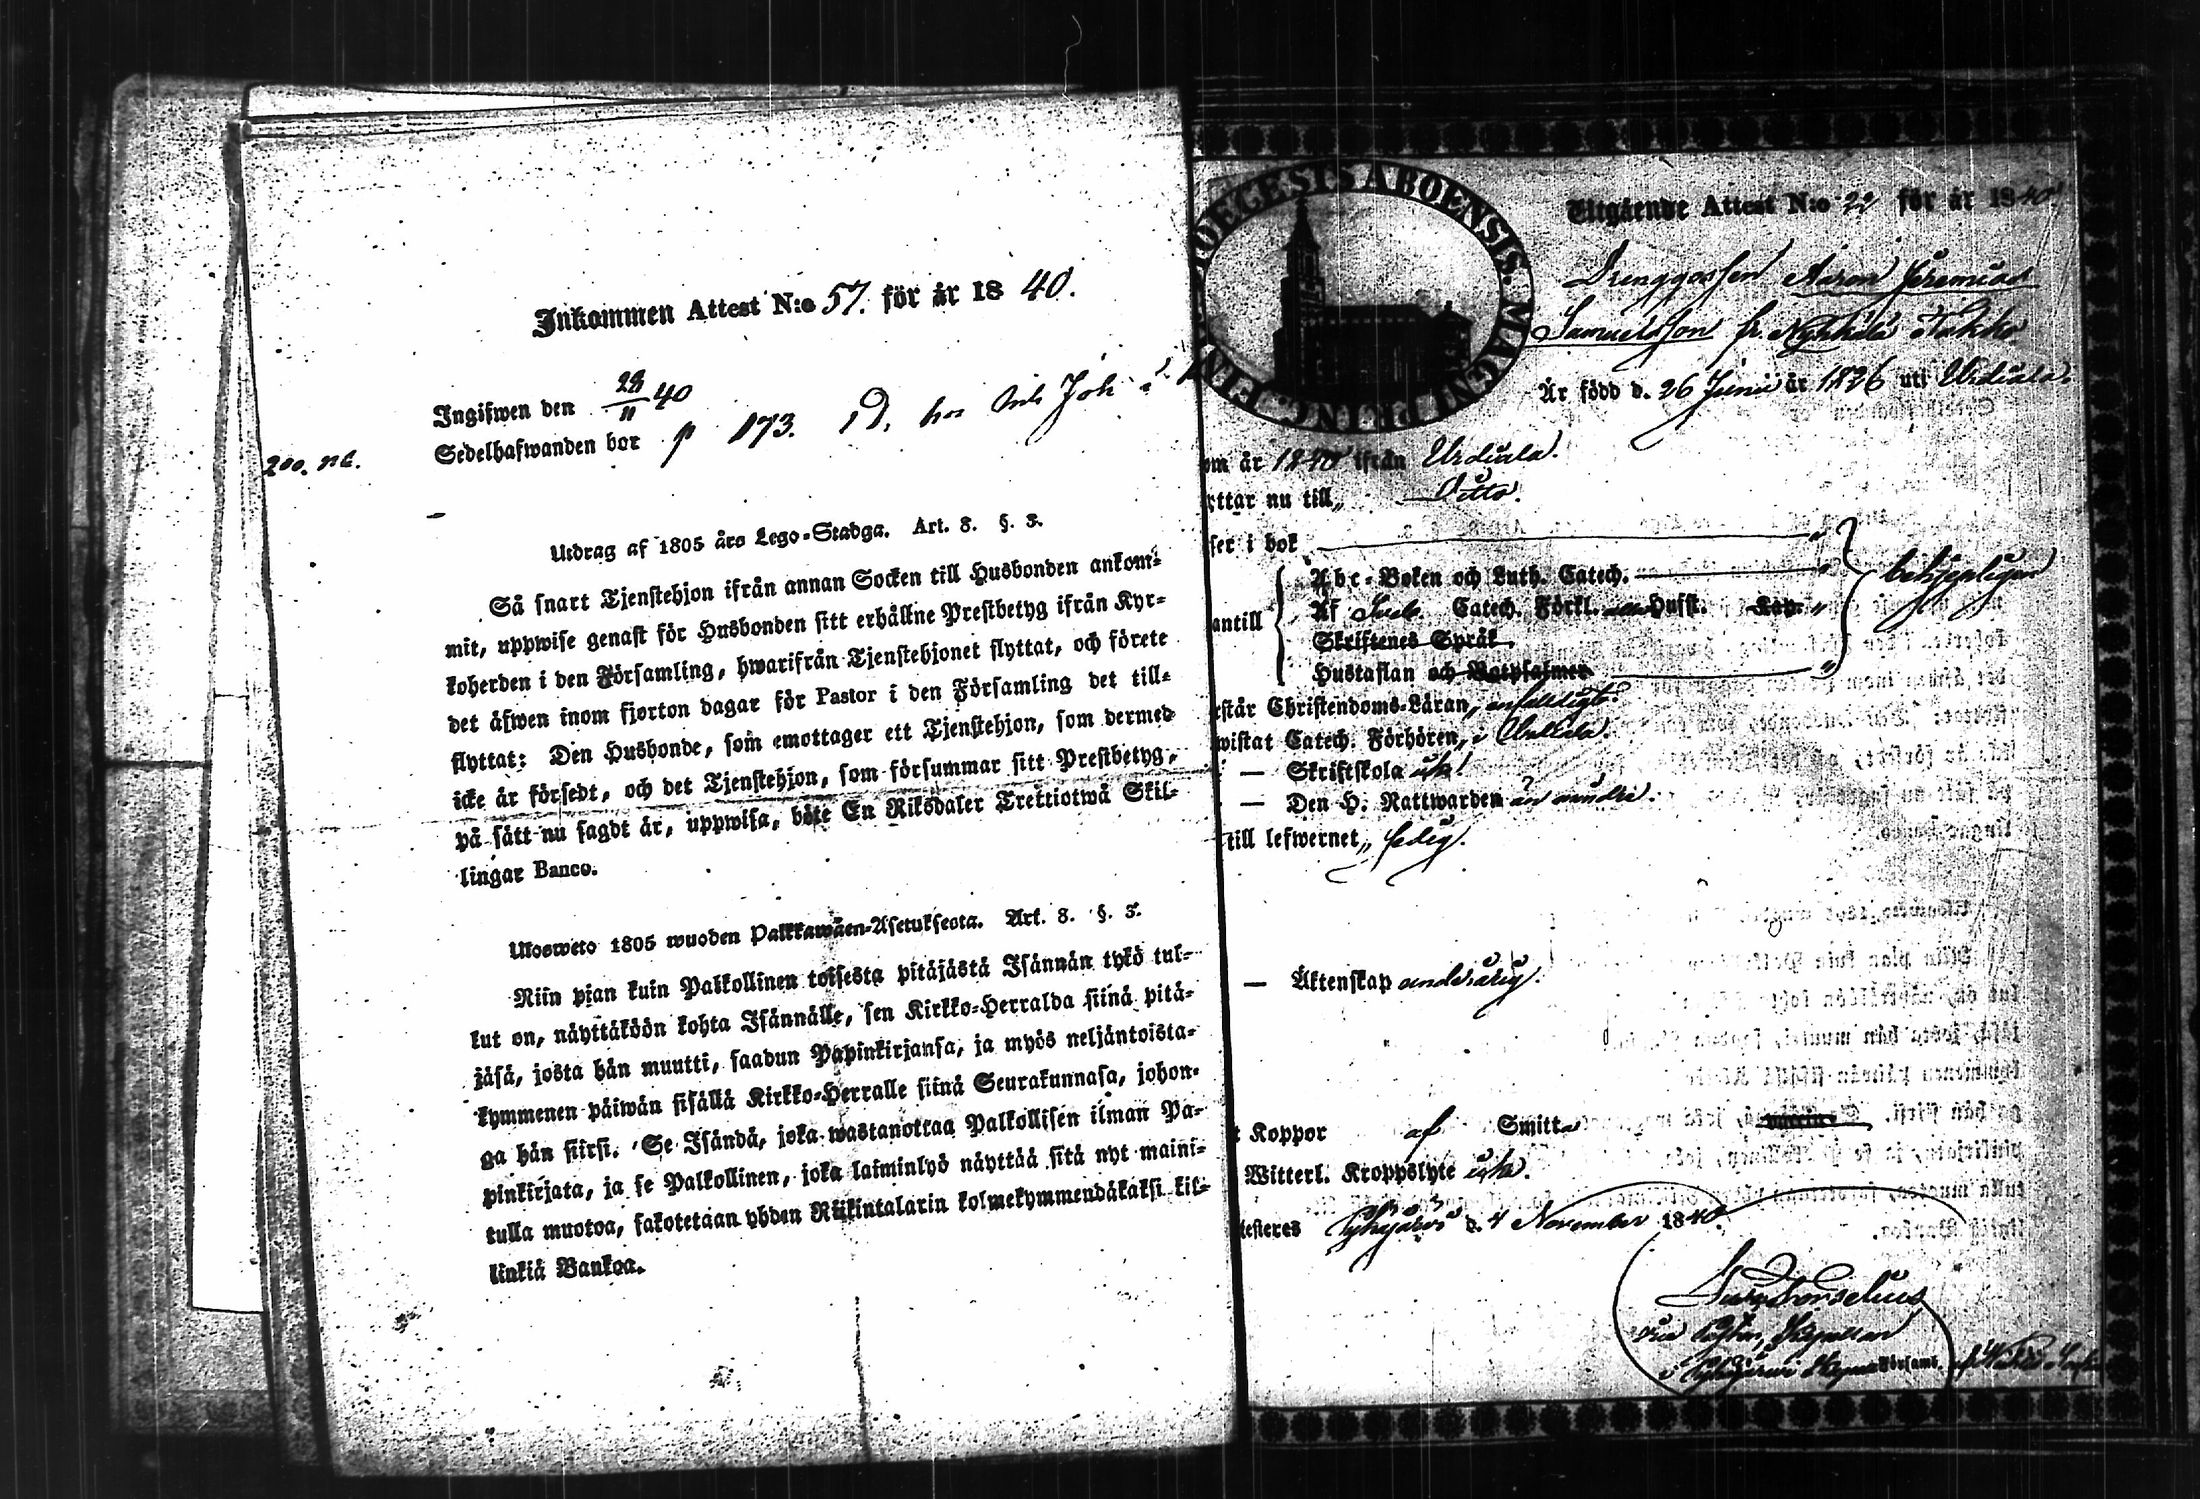 Inkommen Attest N:o 57. för år 18 40.
Ingifwen den 28/11 40
Sedelhafwanden bor p 173. hos Joh
200. 
Utdrag af 1805 års Lego-Stadga. Art. 8. §. 3.
Så snart Tjenstehjon ifrån annan Socken till Husbonden ankom-
mit, uppwise genast för Husbonden sitt erhållne Prestbetyg ifrån Kyr-
koherden i den Församling, hwarifrån Tjenstehjonet flyttat, och förete
det äfwen inom fjorton dagar för Pastor i den Församling det till-
flyttat: Den Husbonde, som emottager ett Tjenstehjon, som dermed
icke är försedt, och det Tjenstehjon, som försummar sitt Prestbetyg,
på sätt nu sagdt är, uppwisa, böte En Riksdaler Trettiotwå Skil-
lingar Banco.
Ulosweto 1805 wuoden Palkkawäen-Asetuksesta. Art. 8. §. 3.
Niin pian kuin Palkollinen toisesta pitäjästä Isännän tykö tul-
lut on, näyttäköön kohta Isännälle, sen Kirkko-Herralda siinä pitä-
jäsä, josta hän muutti, saadun Papinkirjansa, ja myös neljäntoista-
kymmenen päiwän sisällä Kirkko-Herralle siinä Seurakunnasa, johon-
ga hän siirsi. Se Isändä, joka wastanottaa Palkollisen ilman Pa-
pinkirjata, ja se Palkollinen, joka laiminlyö näyttää sitä nyt maini-
tulla muotoa, sakotetaan yhden Riikintalarin kolmekymmendäkaksi kil-
linkiä Bankoa.
OECESIS ABOENSIS. MAGNI PRINC. FIN
Utgående Attest N:o 22 för år 1840
Drenggossen Aron Jeremias
Samuelsson fr. Takko
Är född d. 26 Junii år 1826 uti Urdiala.
om år 1840 ifrån Urdiala.
yttar nu till Ditto.
ser i bok
Abc-Boken och Luth. Catech.
Af Catech. Förkl. Husst. Kap.
antill
Skriftenes Språk
Hustaflan och Botpsalmer
behjepligen
rstår Christendoms-Läran, enfaldigt.
wistat Catech. Förhören, i
— Skriftskola icke!
— Den H. Nattwarden än mindre.
till lefwernet, sedig.
— Äktenskap oundvarig.
t Koppor af Smitta
Witterl. Kroppslyte icke.
testeres Pyhäjärvi d. 4 November 1840.